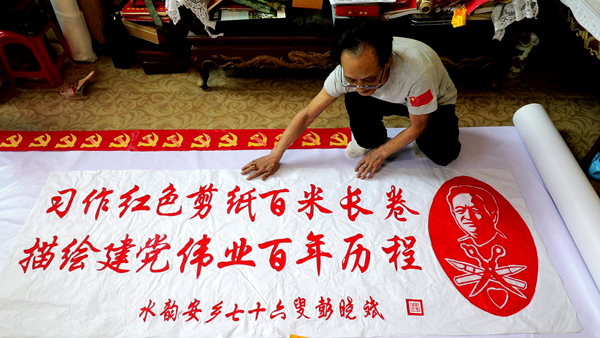 习作红色剪纸百米长卷
描绘建党伟业百年历程
水韵安乡七十六叟彭晓斌